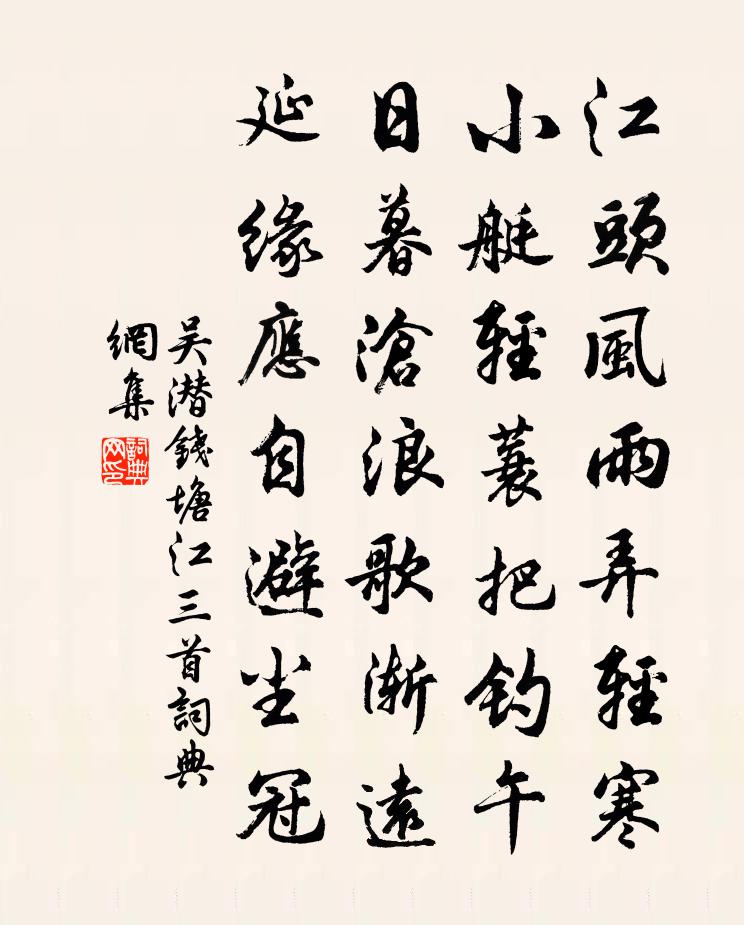 江頭風雨弄輕寒
小艇輕蓑把釣午
日暮滄浪歌漸遠
延緣應自避尘冠
吴潜錢塘江三首詞典
網集
詞典
网印